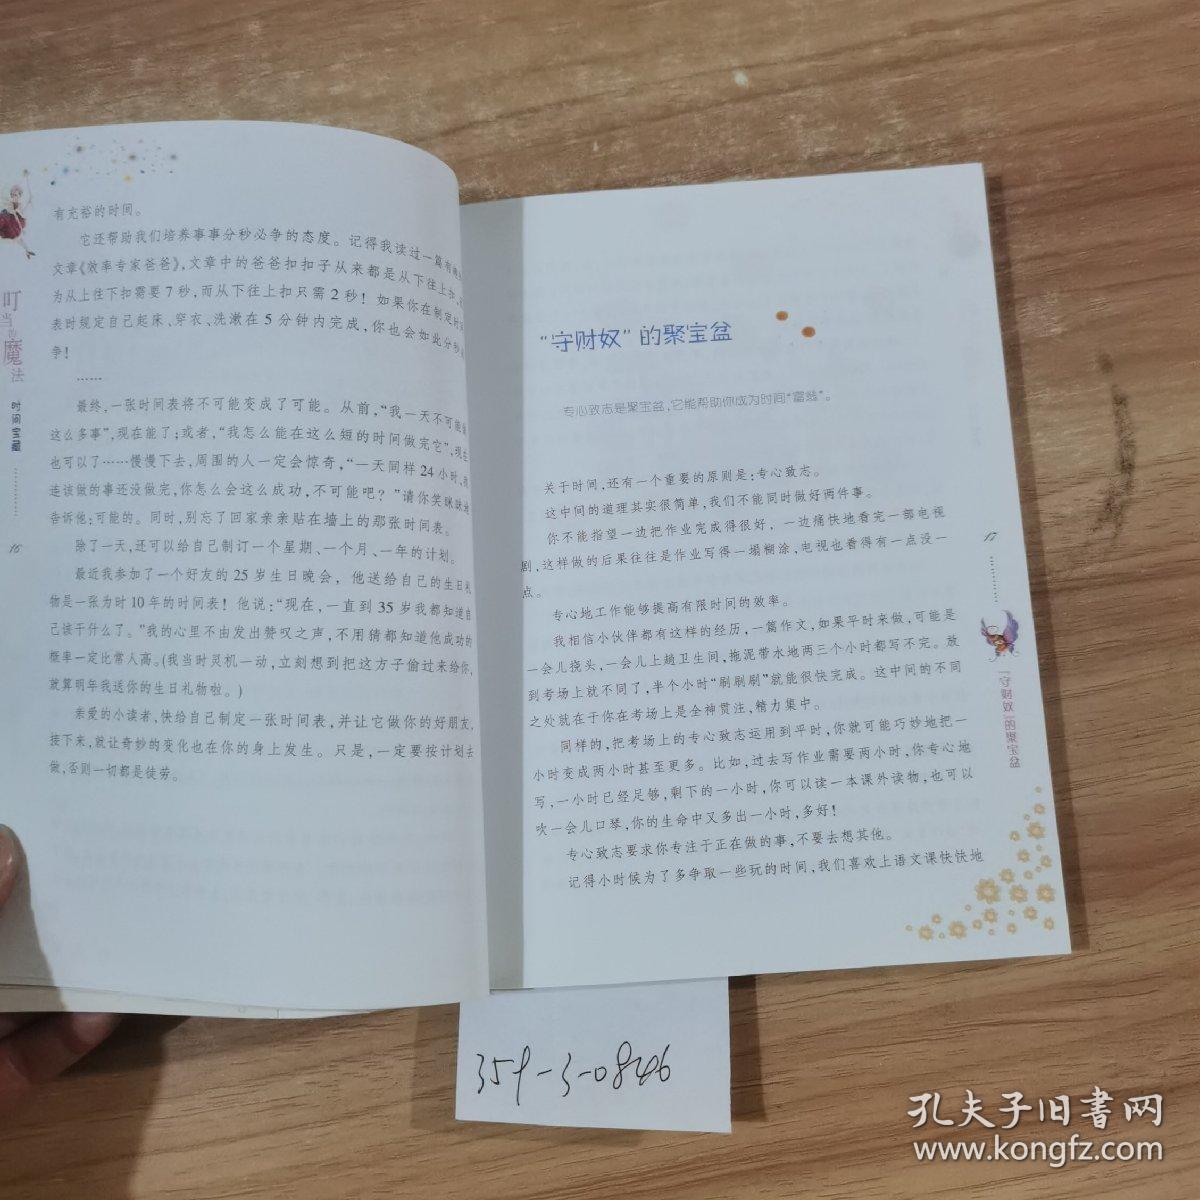 有充裕的时间。
它还帮助我们培养事事分秒必争的态度。记得我读过一篇有
文章《效率专家爸爸》,文章中的爸爸扣扣子从来都是从下往上扣,
为从上往下扣需要7秒,而从下往上扣只需2秒!如果你在制定时
表时规定自己起床、穿衣、洗漱在5分钟内完成,你也会如此分秒
争!
……
最终,一张时间表将不可能变成了可能。从前,“我一天不可能
这么多事”,现在能了;或者,“我怎么能在这么短的时间做完它”,现在
也可以了……慢慢下去,周围的人一定会惊奇,“一天同样24小时,我
连该做的事还没做完,你怎么会这么成功,不可能吧?”请你笑眯眯地
告诉他:可能的。同时,别忘了回家亲亲贴在墙上的那张时间表。
除了一天,还可以给自己制订一个星期、一个月、一年的计划。
最近我参加了一个好友的25岁生日晚会,他送给自己的生日礼
物是一张为时10年的时间表!他说:“现在,一直到35岁我都知道自
己该干什么了。”我的心里不由发出赞叹之声,不用猜都知道他成功的
概率一定比常人高。(我当时灵机一动,立刻想到把这方子偷过来给你,
就算明年我送你的生日礼物啦。)
亲爱的小读者,快给自己制定一张时间表,并让它做你的好朋友,
接下来,就让奇妙的变化也在你的身上发生。只是,一定要按计划去
做,否则一切都是徒劳。
叮当的魔法
时间宝藏
16
“守财奴”的聚宝盆
专心致志是聚宝盆,它能帮助你成为时间“富翁”。
关于时间,还有一个重要的原则是:专心致志。
这中间的道理其实很简单,我们不能同时做好两件事。
你不能指望一边把作业完成得很好,一边痛快地看完一部电视
剧,这样做的后果往往是作业写得一塌糊涂,电视也看得有一点没一
点。
专心地工作能够提高有限时间的效率。
我相信小伙伴都有这样的经历,一篇作文,如果平时来做,可能是
一会儿挠头,一会儿上趟卫生间,拖泥带水地两三个小时都写不完。放
到考场上就不同了,半个小时“刷刷刷”就能很快完成。这中间的不同
之处就在于你在考场上是全神贯注,精力集中。
同样的,把考场上的专心致志运用到平时,你就可能巧妙地把一
小时变成两小时甚至更多。比如,过去写作业需要两小时,你专心地
写,一小时已经足够,剩下的一小时,你可以读一本课外读物,也可以
吹一会儿口琴,你的生命中又多出一小时,多好!
专心致志要求你专注于正在做的事,不要去想其他。
记得小时候为了多争取一些玩的时间,我们喜欢上语文课快快地
17
“守财奴”的聚宝盆
359-3-0846
孔夫子旧书网
www.kongfz.com